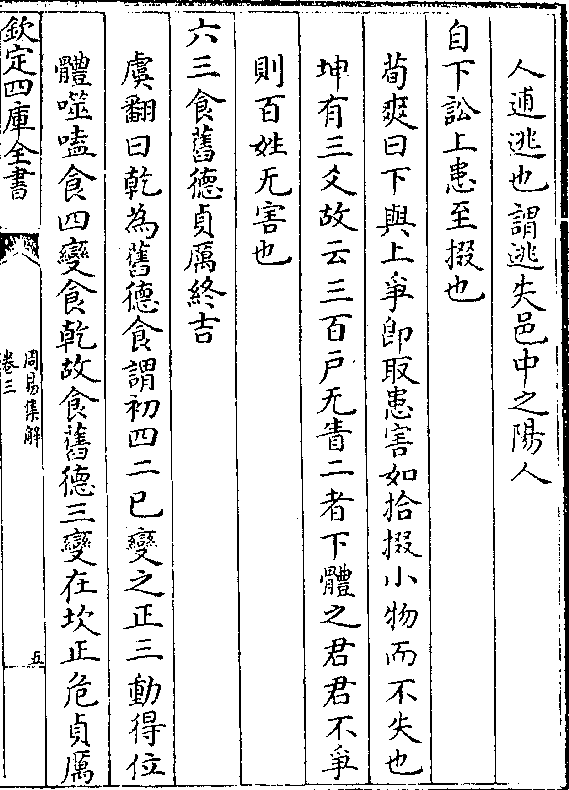 人逋逃也謂逃失邑中之陽人
自下訟上患至掇也
荀爽曰下與上爭即取患害如拾掇小物而不失也
坤有三爻故云三百戶无眚二者下體之君君不爭
則百姓无害也
六三食舊德貞厲終吉
虞翻曰乾為舊德食謂初四二已變之正三動得位
體噬嗑食四變食乾故食舊德三變在坎正危貞厲
欽定四庫全書
周易集解
卷三
五